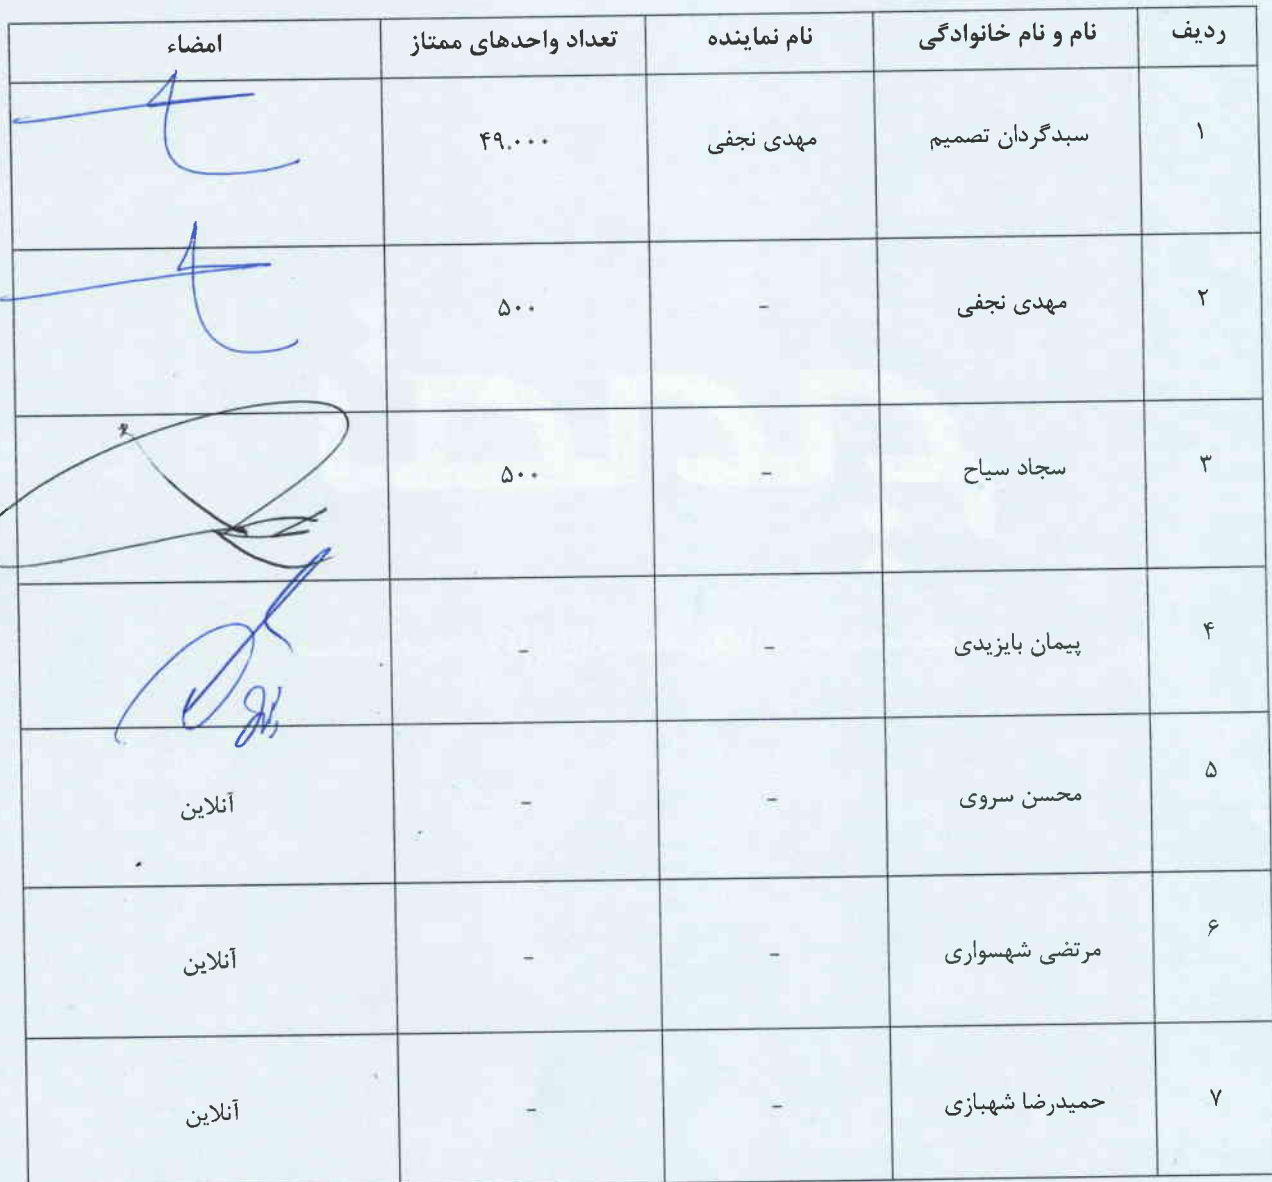 ردیف نام و نام خانوادگی نام نماینده تعداد واحدهای ممتاز امضاء
۱ سبدگردان تصمیم مهدی نجفی ۴۹.۰۰۰
۲ مهدی نجفی - ۵۰۰
۳ سجاد سیاح - ۵۰۰
۴ پیمان بایزیدی - -
۵ محسن سروی - - آنلاین
۶ مرتضی شهسواری - - آنلاین
۷ حمیدرضا شهبازی - - آنلاین